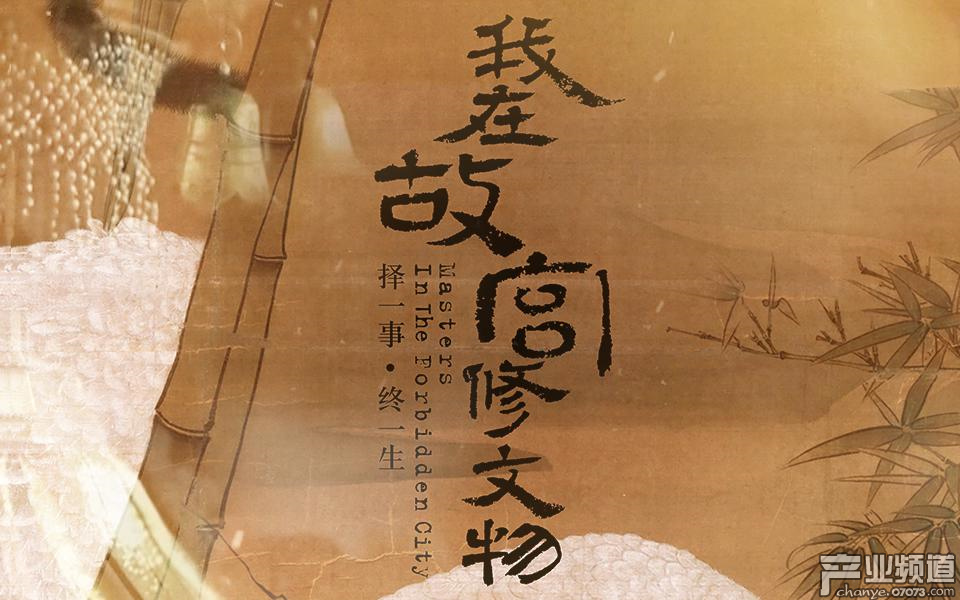 我在故宫修文物
Masters
In The Forbidden City
择一事·终一生
产业频道
chanye.07073.com